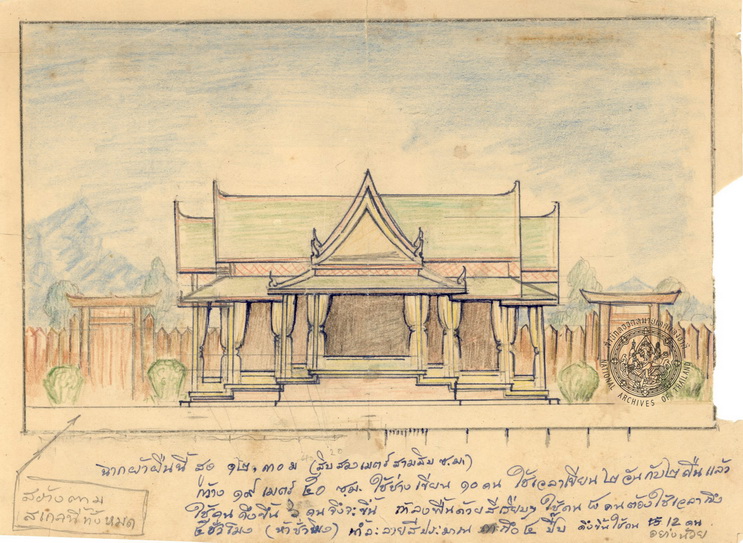 หอจดหมายเหตุแห่งชาติ
NATIONAL ARCHIVES OF THAILAND
ฉากผ้าผืนนี้ สูง ๑๒.๓๐ ม (สิบสองเมตร์สามสิบ ซ.ม.)
กว้าง ๑๙ เมตร์ ๕๐ ซ.ม. ใช้ช่างเขียน ๑๐ คน ใช้เวลาเขียน ๒ วันกับ ๒ คืน แล้ว
ใช้คนดึงขึ้น ๖ คนจึงจะขึ้น เมื่อลงพื้นด้วยสีเรียบๆ ใช้คน ๘ คนต้องใช้เวลาถึง
๕ ชั่วโมง (ห้าชั่วโมง) ทำละลายสีประมาณ ๓ ถึง ๔ ปี๊บ ดึงขึ้นใช้คน 12 คน
อย่างน้อย
สร้างตาม
สเกลนี้ทั้งหมด